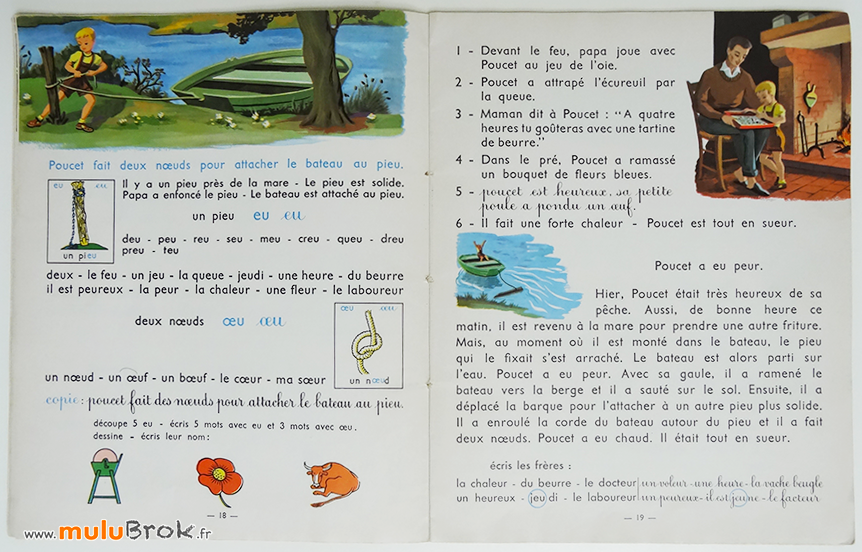 Poucet fait deux nœuds pour attacher le bateau au pieu.
eu eu
un pieu
Il y a un pieu près de la mare - Le pieu est solide.
Papa a enfoncé le pieu - Le bateau est attaché au pieu.
un pieu eu eu
deu - peu - reu - seu - meu - creu - queu - dreu
preu - teu
deux - le feu - un jeu - la queue - jeudi - une heure - du beurre
il est peureux - la peur - la chaleur - une fleur - le laboureur
deux nœuds œu œu
œu œu
un nœud
un nœud - un œuf - un bœuf - le cœur - ma sœur
copie : poucet fait des nœuds pour attacher le bateau au pieu.
découpe 5 eu - écris 5 mots avec eu et 3 mots avec œu,
dessine - écris leur nom :
— 18 —
www.muluBrok.fr
1 - Devant le feu, papa joue avec
Poucet au jeu de l'oie.
2 - Poucet a attrapé l'écureuil par
la queue.
3 - Maman dit à Poucet : "A quatre
heures tu goûteras avec une tartine
de beurre."
4 - Dans le pré, Poucet a ramassé
un bouquet de fleurs bleues.
5 - poucet est heureux, sa petite
poule a pondu un œuf.
6 - Il fait une forte chaleur - Poucet est tout en sueur.
Poucet a eu peur.
Hier, Poucet était très heureux de sa
pêche. Aussi, de bonne heure ce
matin, il est revenu à la mare pour prendre une autre friture.
Mais, au moment où il est monté dans le bateau, le pieu
qui le fixait s'est arraché. Le bateau est alors parti sur
l'eau. Poucet a eu peur. Avec sa gaule, il a ramené le
bateau vers la berge et il a sauté sur le sol. Ensuite, il a
déplacé la barque pour l'attacher à un autre pieu plus solide.
Il a enroulé la corde du bateau autour du pieu et il a fait
deux nœuds. Poucet a eu chaud. Il était tout en sueur.
écris les frères :
la chaleur - du beurre - le docteur un voleur - une heure - la vache beugle
un heureux - jeudi - le laboureur un peureux - il est jeune - le facteur
— 19 —